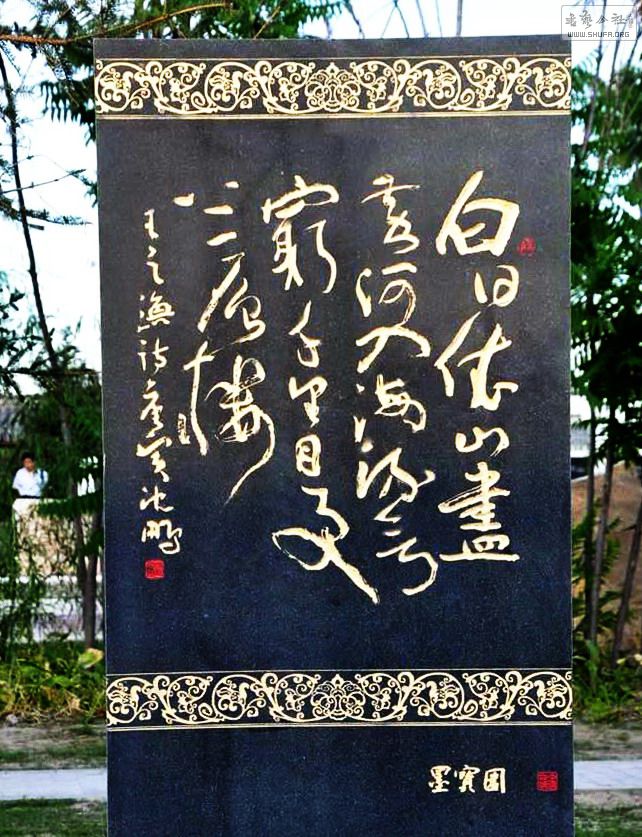 書藝公社
WWW.SHUFA.ORG
白日依山盡
黄河入海流欲
窮千里目更
上一層樓
王之渙詩庚寅沈鵬
墨寶園